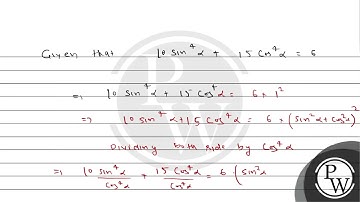 Given that 10 sin⁴α + 15 cos⁴α = 6
⇒ 10 sin⁴α + 15 cos⁴α = 6 × 1²
⇒ 10 sin⁴α + 15 cos⁴α = 6 × (sin²α + cos²α)²
Dividing both side by cos⁴α
⇒ 10 sin⁴α/cos⁴α + 15 cos⁴α/cos⁴α = 6 · (sin²α
P
W
P
W